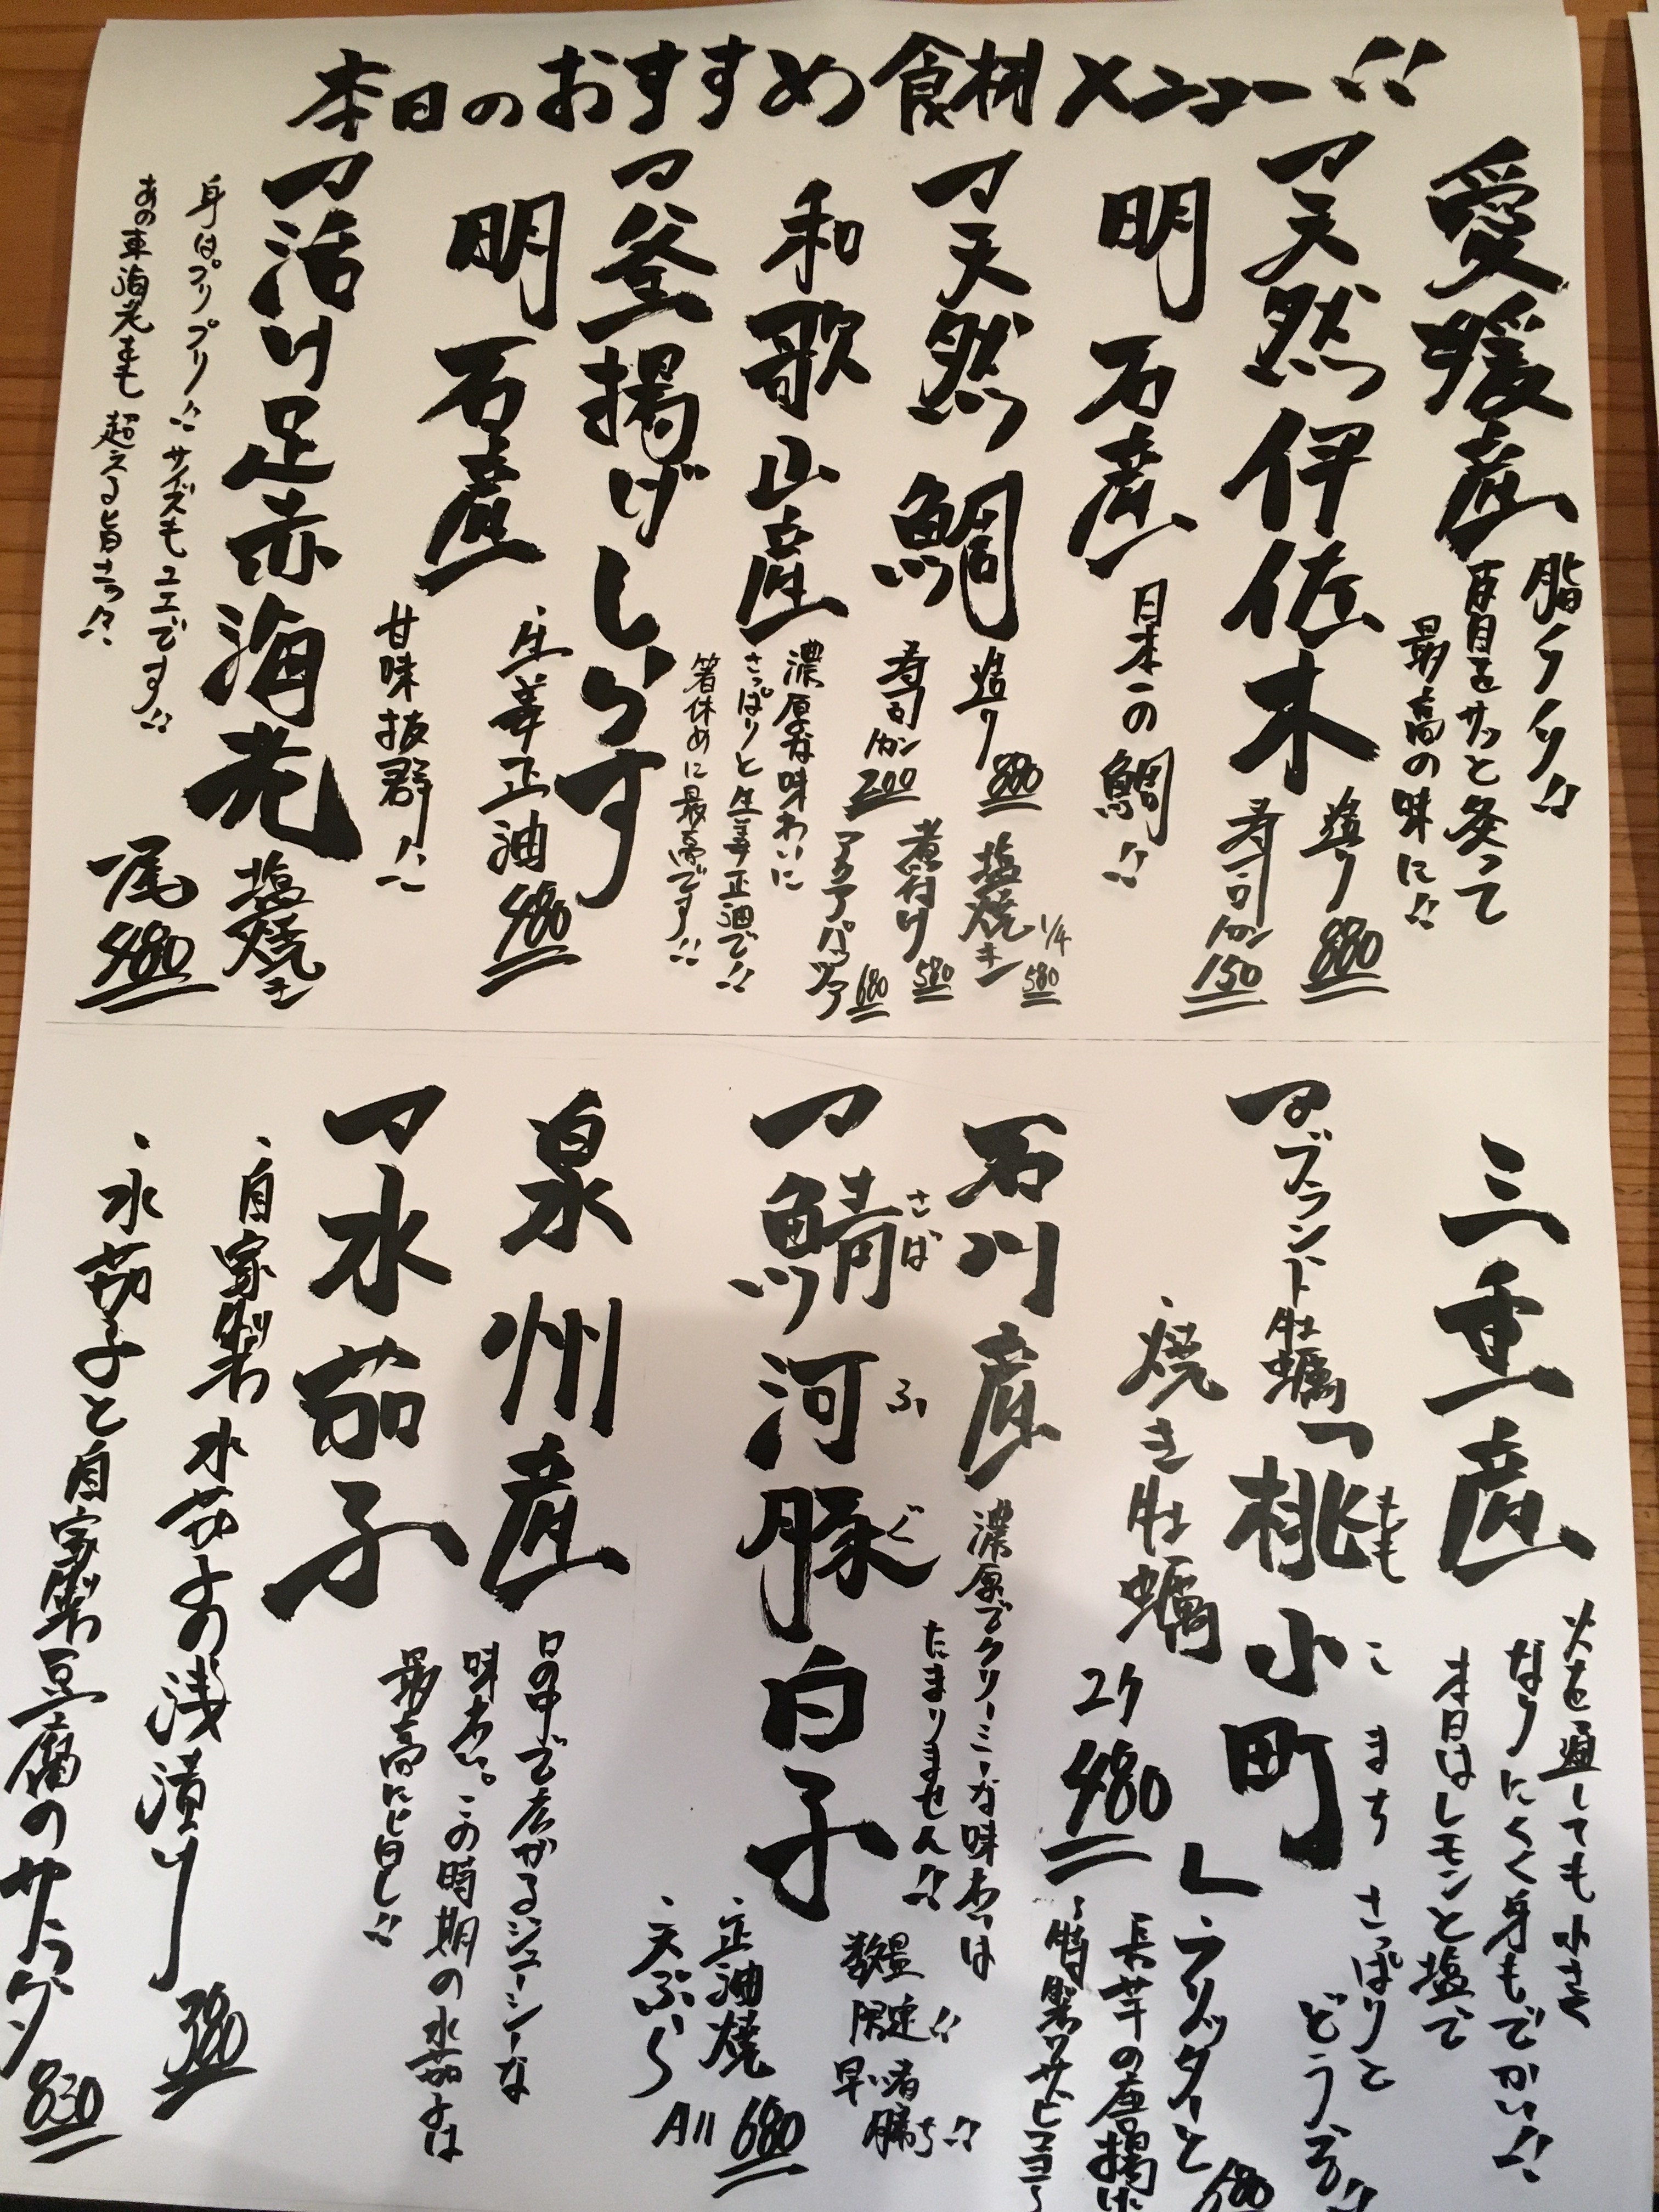 本日のおすすめ食材メニュー!!
愛媛産
脂ノリノリ!!
皮目をサッと炙って
最高の味に!!
天然伊佐木
造り 880
寿司1カン 150
明石産
日本一の鯛!!
天然鯛
造り 880
塩焼き 1/4 580
寿司1カン 200
煮付け 580
アクアパッツァ 680
和歌山産
濃厚な味わいに
さっぱりと生姜正油で!!
箸休めに最高です!!
釜揚げしらす
・生姜正油 480
明石産
甘味抜群!!
活け足赤海老
塩焼き
一尾 480
身はプリプリ!!サイズもユエです!!
あの車海老をも超える旨さっ!!
三重産
火を通しても小さく
なりにくく身もでかい!!
本日はレモンと塩で
さっぱりと
どうぞ!!
ブランド牡蠣「桃小町」
ももこまち
・焼き牡蠣
2ケ 480
・ブリッターと
長芋の唐揚げ
・特製ワサビマヨ
680
石川産
濃厚でクリーミーな味わいは
たまりません!!
鯖河豚白子
さばふぐ
数量限定!!
早い者勝ち!!
・正油焼
・天ぷら
All 680
泉州産
口の中で広がるジューシーな
味わい。この時期の水茄子は
最高に旨し!!
水茄子
・自家製水茄子の浅漬け 380
・水茄子と自家製豆腐のサラダ 830